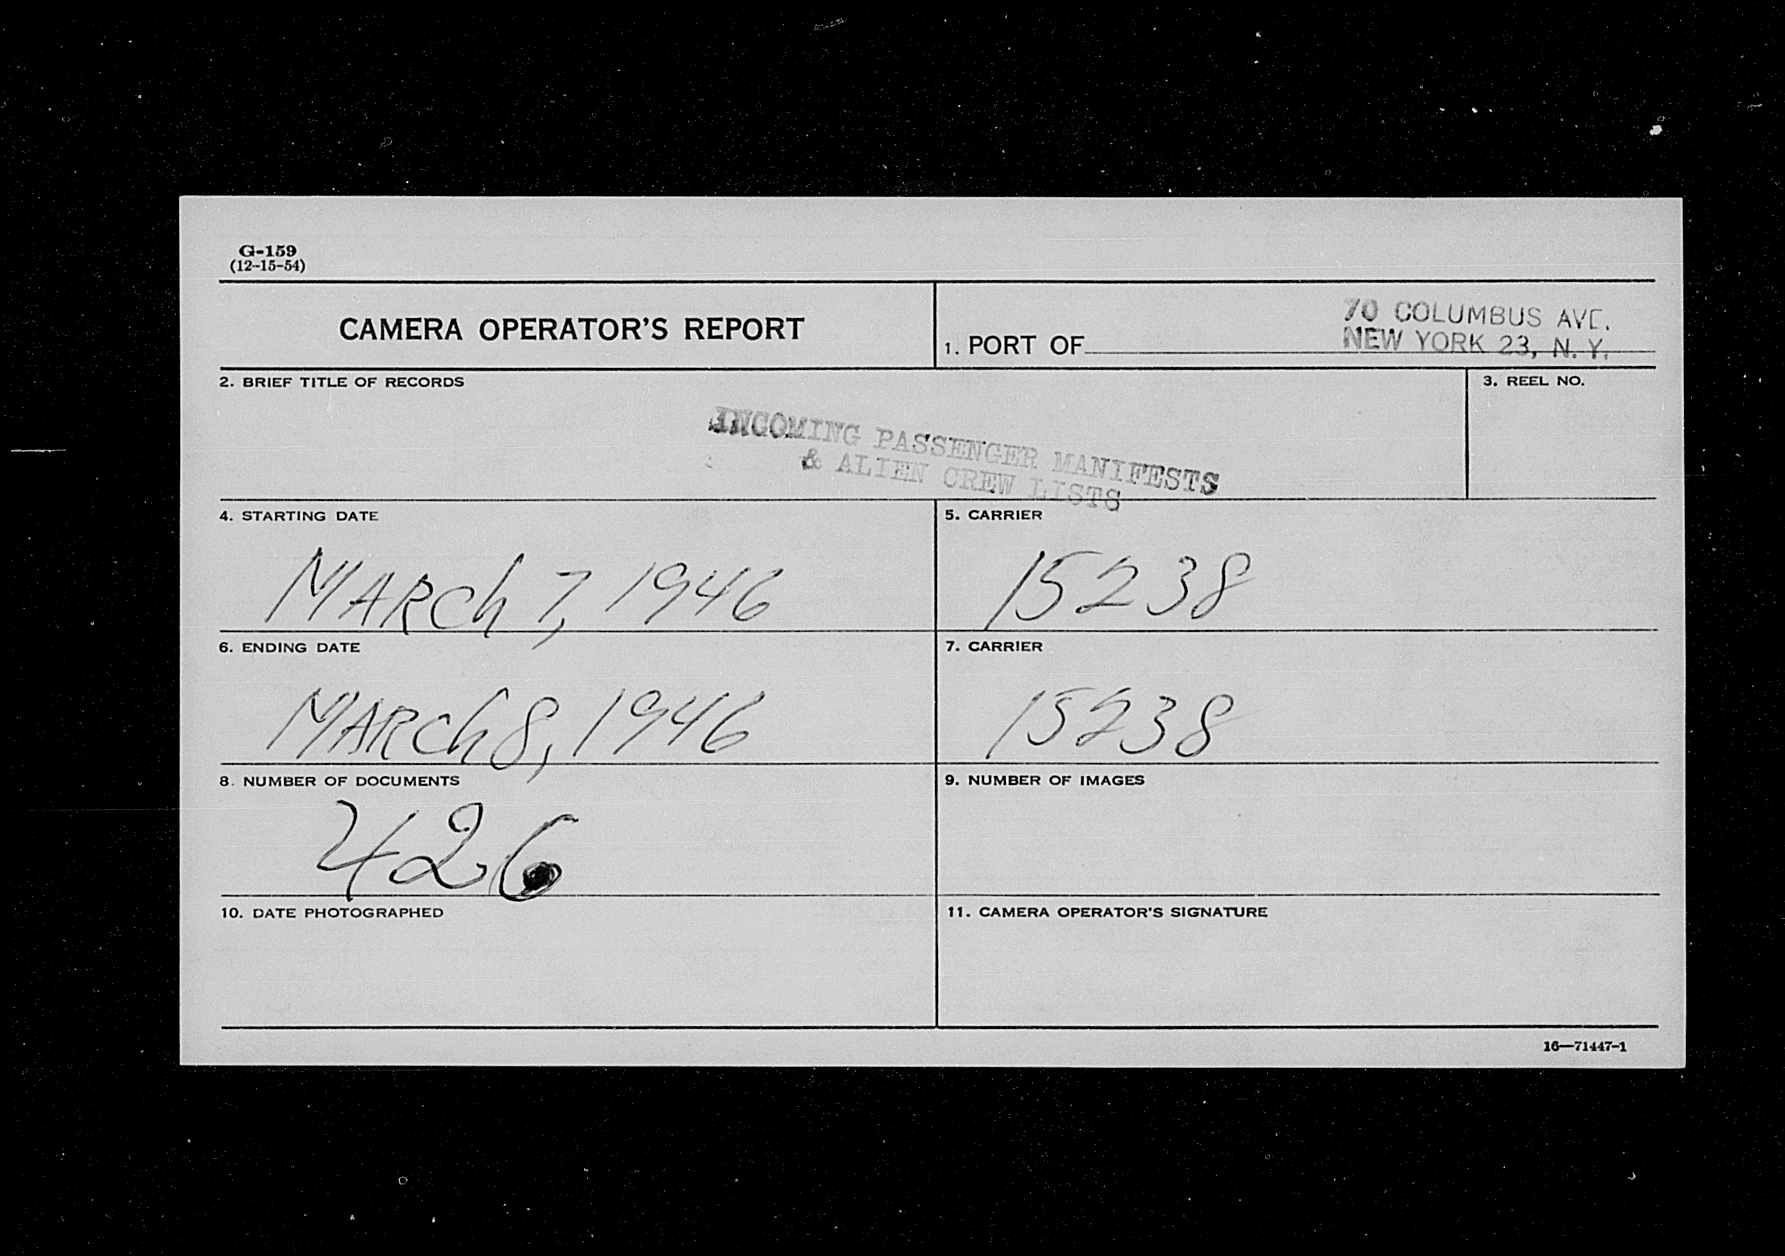 G-159
(12-15-54)
CAMERA OPERATOR'S REPORT
1. PORT OF
70 COLUMBUS AVE.
NEW YORK 23, N. Y.
2. BRIEF TITLE OF RECORDS
INCOMING PASSENGER MANIFESTS
& ALIEN CREW LISTS
3. REEL NO.
4. STARTING DATE
MARCh 7, 1946
5. CARRIER
15238
6. ENDING DATE
MARCh 8, 1946
7. CARRIER
15238
8. NUMBER OF DOCUMENTS
426
9. NUMBER OF IMAGES
10. DATE PHOTOGRAPHED
11. CAMERA OPERATOR'S SIGNATURE
16—71447-1